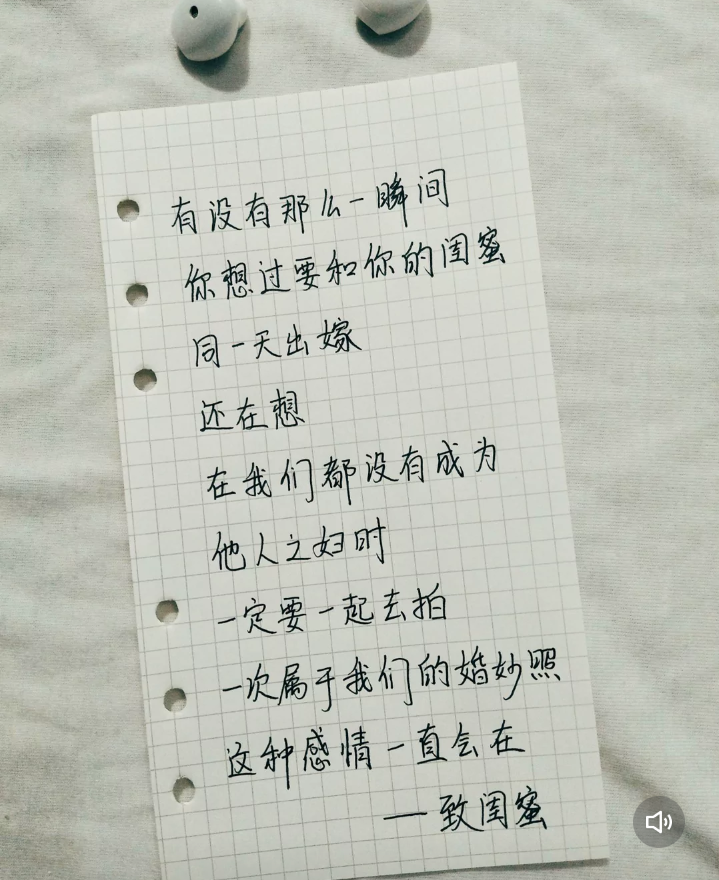 有没有那么一瞬间
你想过要和你的闺蜜
同一天出嫁
还在想
在我们都没有成为
他人之妇时
一定要一起去拍
一次属于我们的婚妙照
这种感情一直会在
——致闺蜜